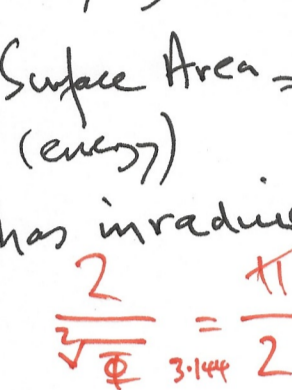 Surface Area =
(energy)
has inradius
2 / ²√Φ = π / 2
3.144